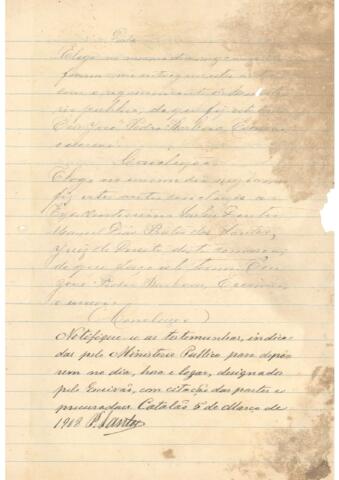 Data
Logo no mesmo dia, me
foram
com o requerimento do Minis-
rio publico, do que fiz este termo
Eu José Pedro Barbosa, Escrivão
o escrevi
Conclusão
E logo no mesmo dia
fiz estes autos conclusos ao
Excellentissimo Senhor Doutor
Manoel Dias Prates dos Santos,
Juiz de Direito desta comarca,
do que faço este termo. Eu
José Pedro Barbosa, Escrivão
o escrevi
(Conclusos)
Notifique-se as testemunhas, indica-
das pelo Ministerio Publico para depo-
rem no dia, hora e logar, designados
pelo Escrivão, com citação das partes e
procuradores Catalão 5 de Março de
1918 P. Santos